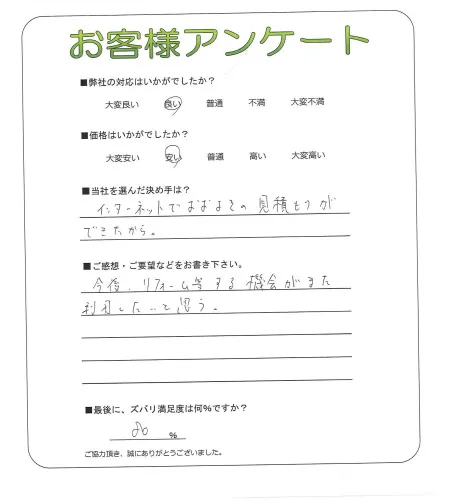 お客様アンケート
■弊社の対応はいかがでしたか？
大変良い 良い 普通 不満 大変不満
■価格はいかがでしたか？
大変安い 安い 普通 高い 大変高い
■当社を選んだ決め手は？
インターネットでおおよその見積もりが
できたから。
■ご感想・ご要望などをお書き下さい。
今後、リフォーム等する機会がまた
利用したいと思う。
■最後に、ズバリ満足度は何％ですか？
80 ％
ご協力頂き、誠にありがとうございました。